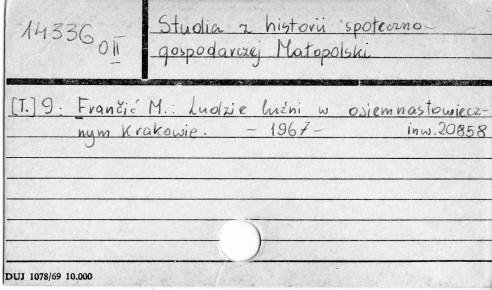 14336 OII
Studia z historii społeczno-
gospodarczej Małopolski
[T.] 9. Frančić M.: Ludzie luźni w osiemnastowiecz-
nym Krakowie. - 1967 - inw. 20858
DUJ 1078/69 10.000